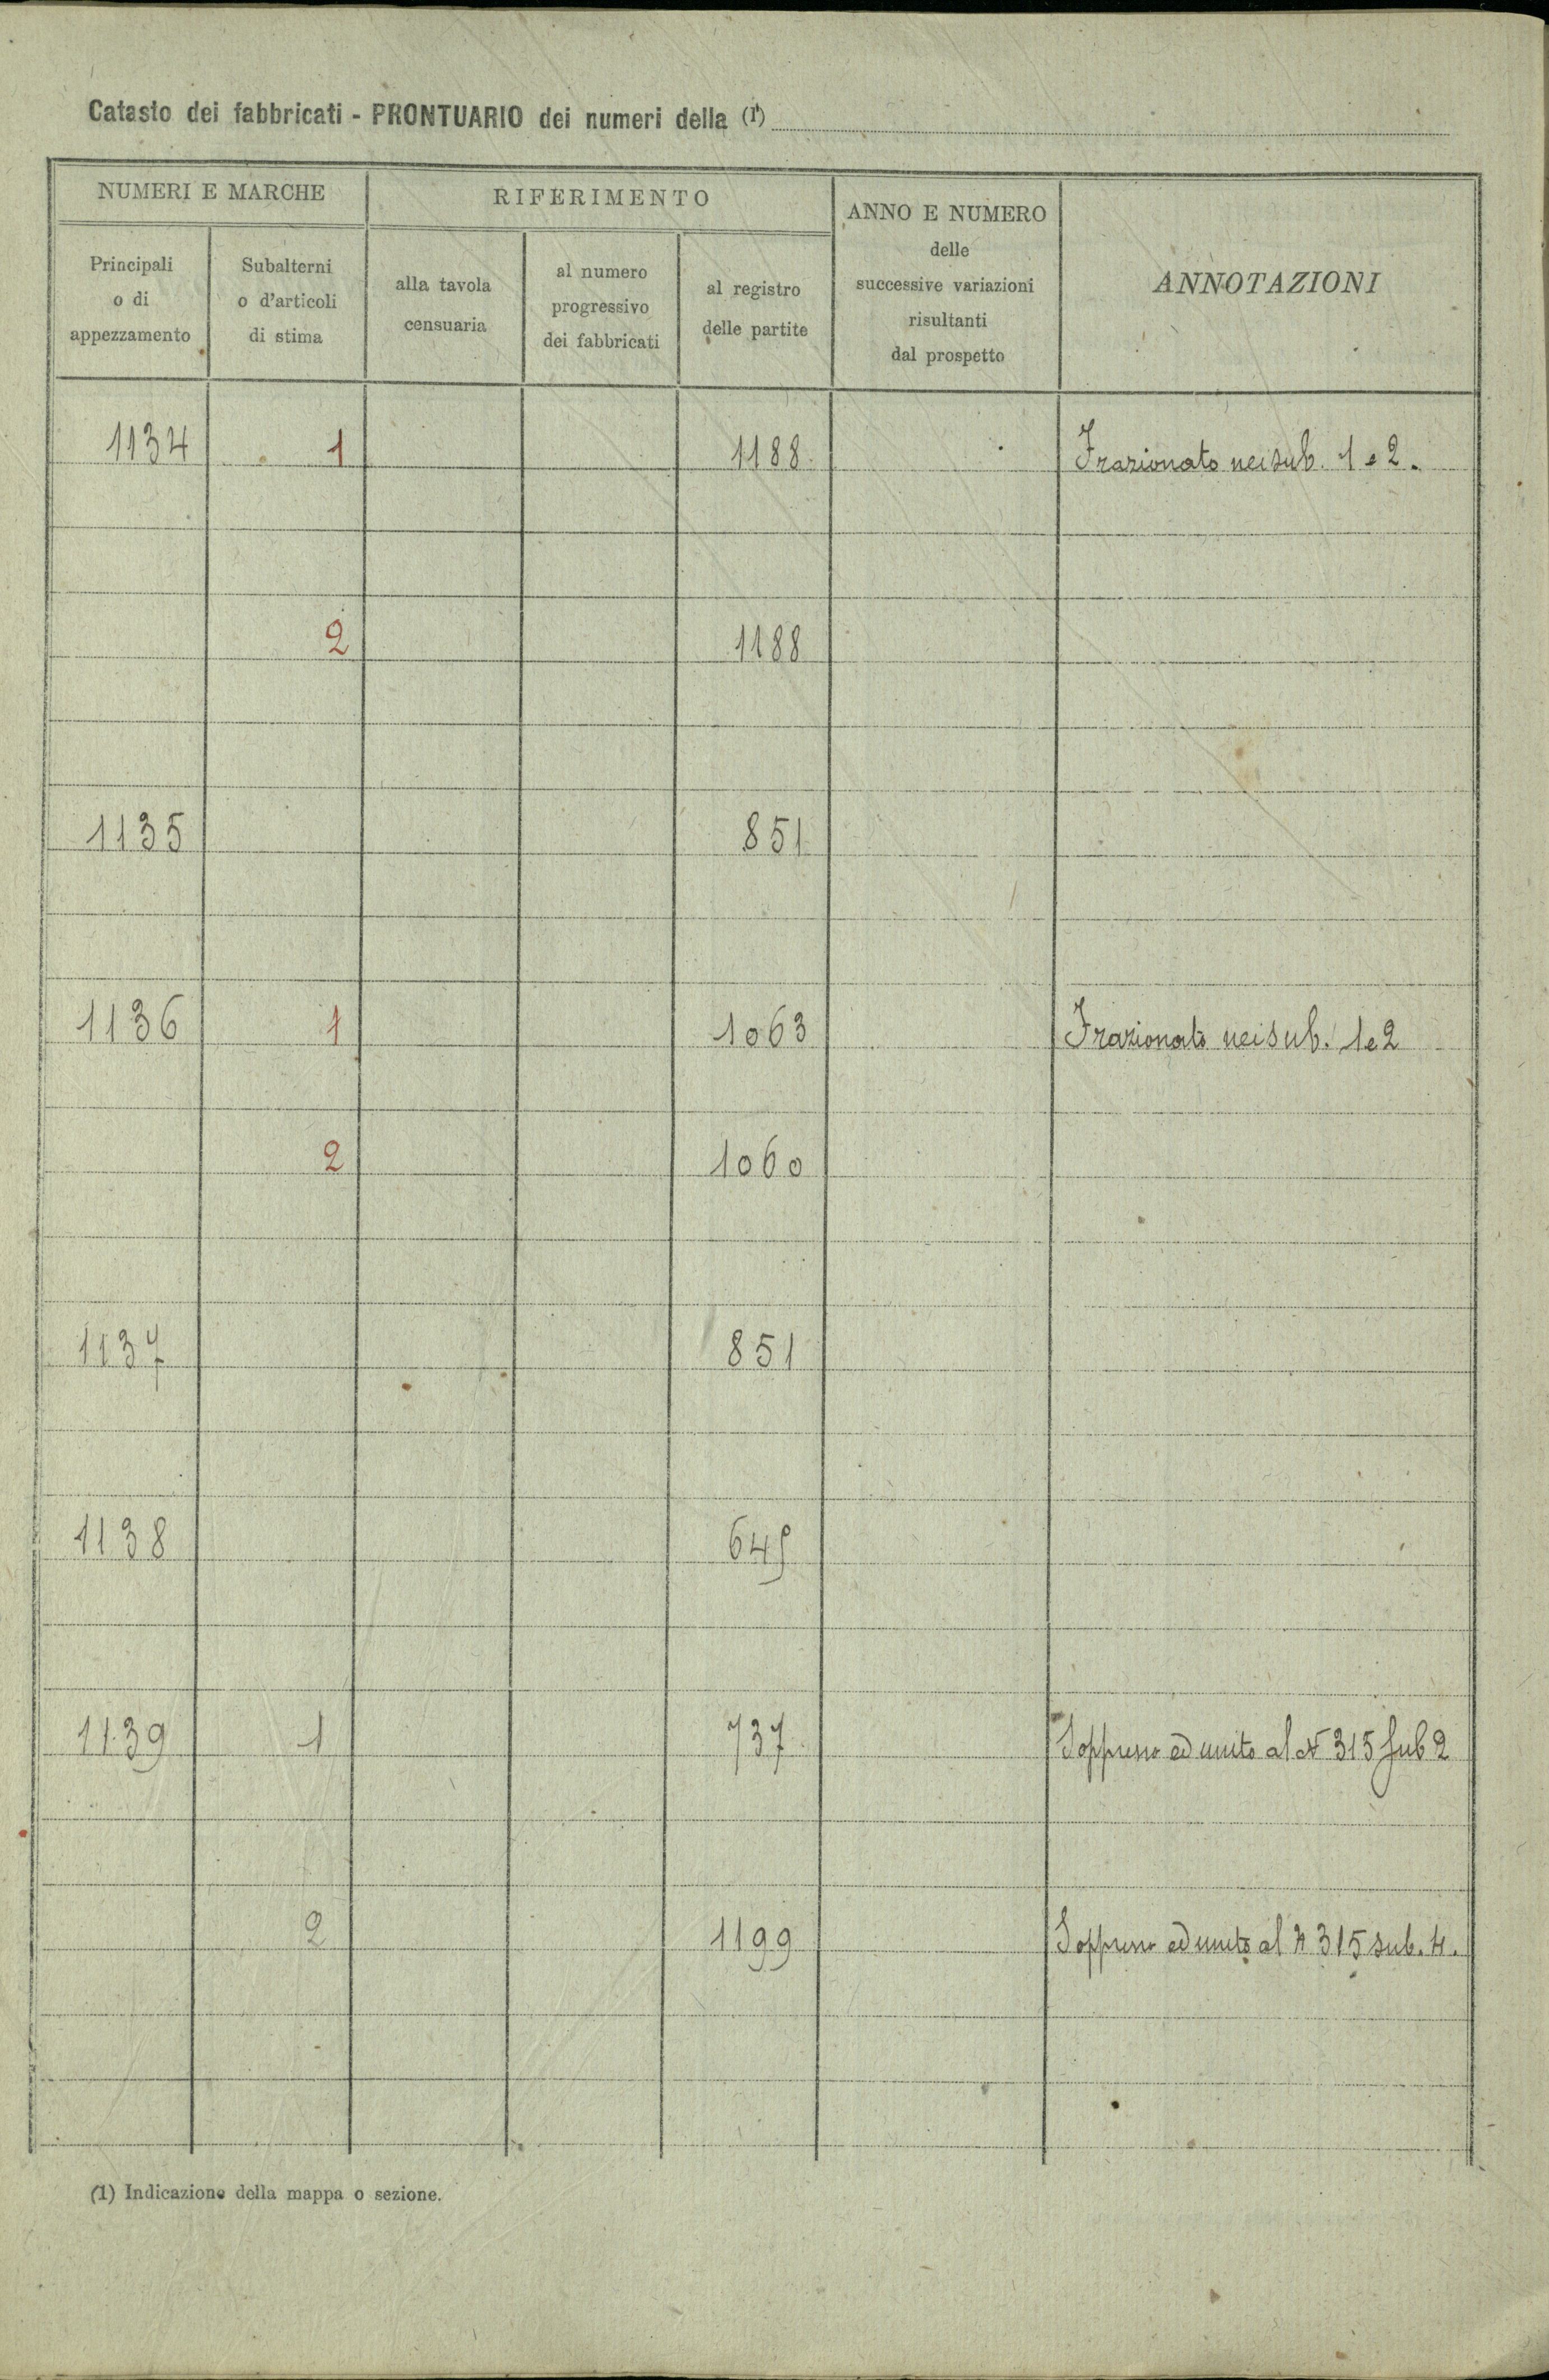 Catasto dei fabbricati - PRONTUARIO dei numeri della (1)
NUMERI E MARCHE
RIFERIMENTO
ANNO E NUMERO
delle
successive variazioni
risultanti
dal prospetto
ANNOTAZIONI
Principali
o di
appezzamento
Subalterni
o d'articoli
di stima
alla tavola
censuaria
al numero
progressivo
dei fabbricati
al registro
delle partite
1134 1 1188 Frazionato nei sub. 1 e 2.
2 1188
1135 851
1136 1 1063 Frazionato nei sub. 1 e 2
2 1060
1137 851
1138 645
1139 1 737 Soppresso ed unito al N 315 sub 2
2 1199 Soppresso ed unito al N 315 sub. 4.
(1) Indicazione della mappa o sezione.